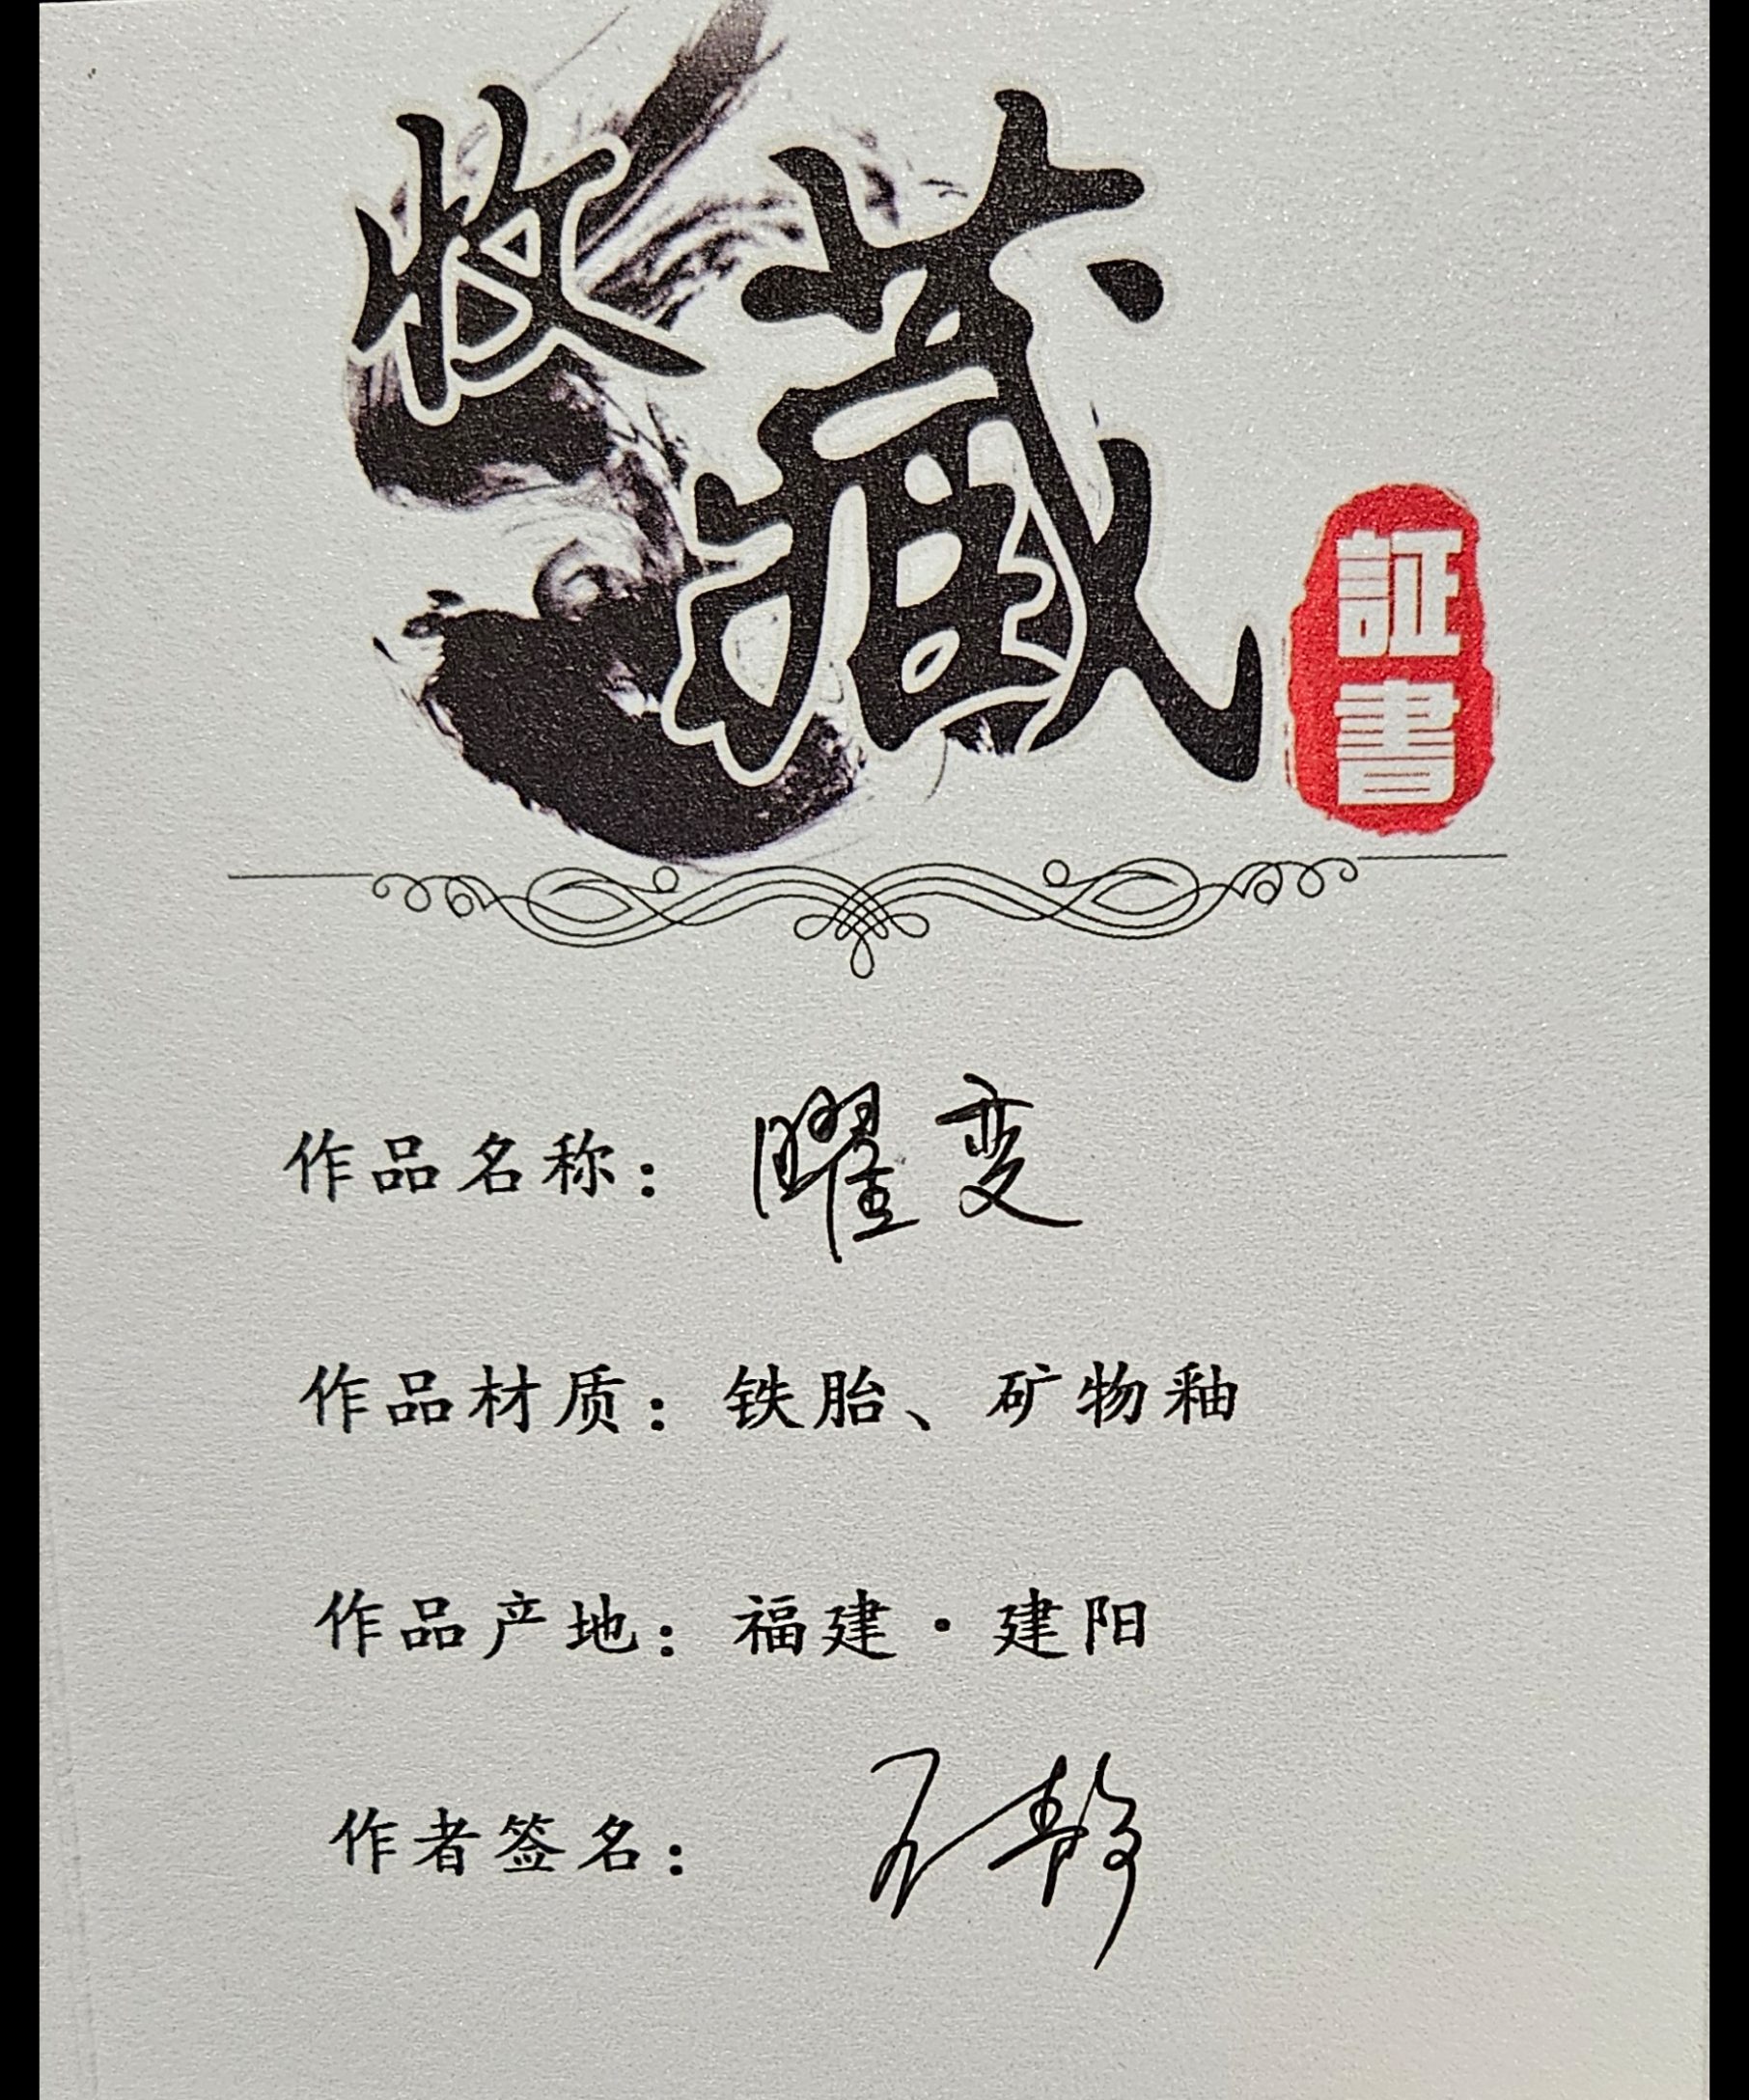 收藏
証書
作品名称：曜变
作品材质：铁胎、矿物釉
作品产地：福建·建阳
作者签名：